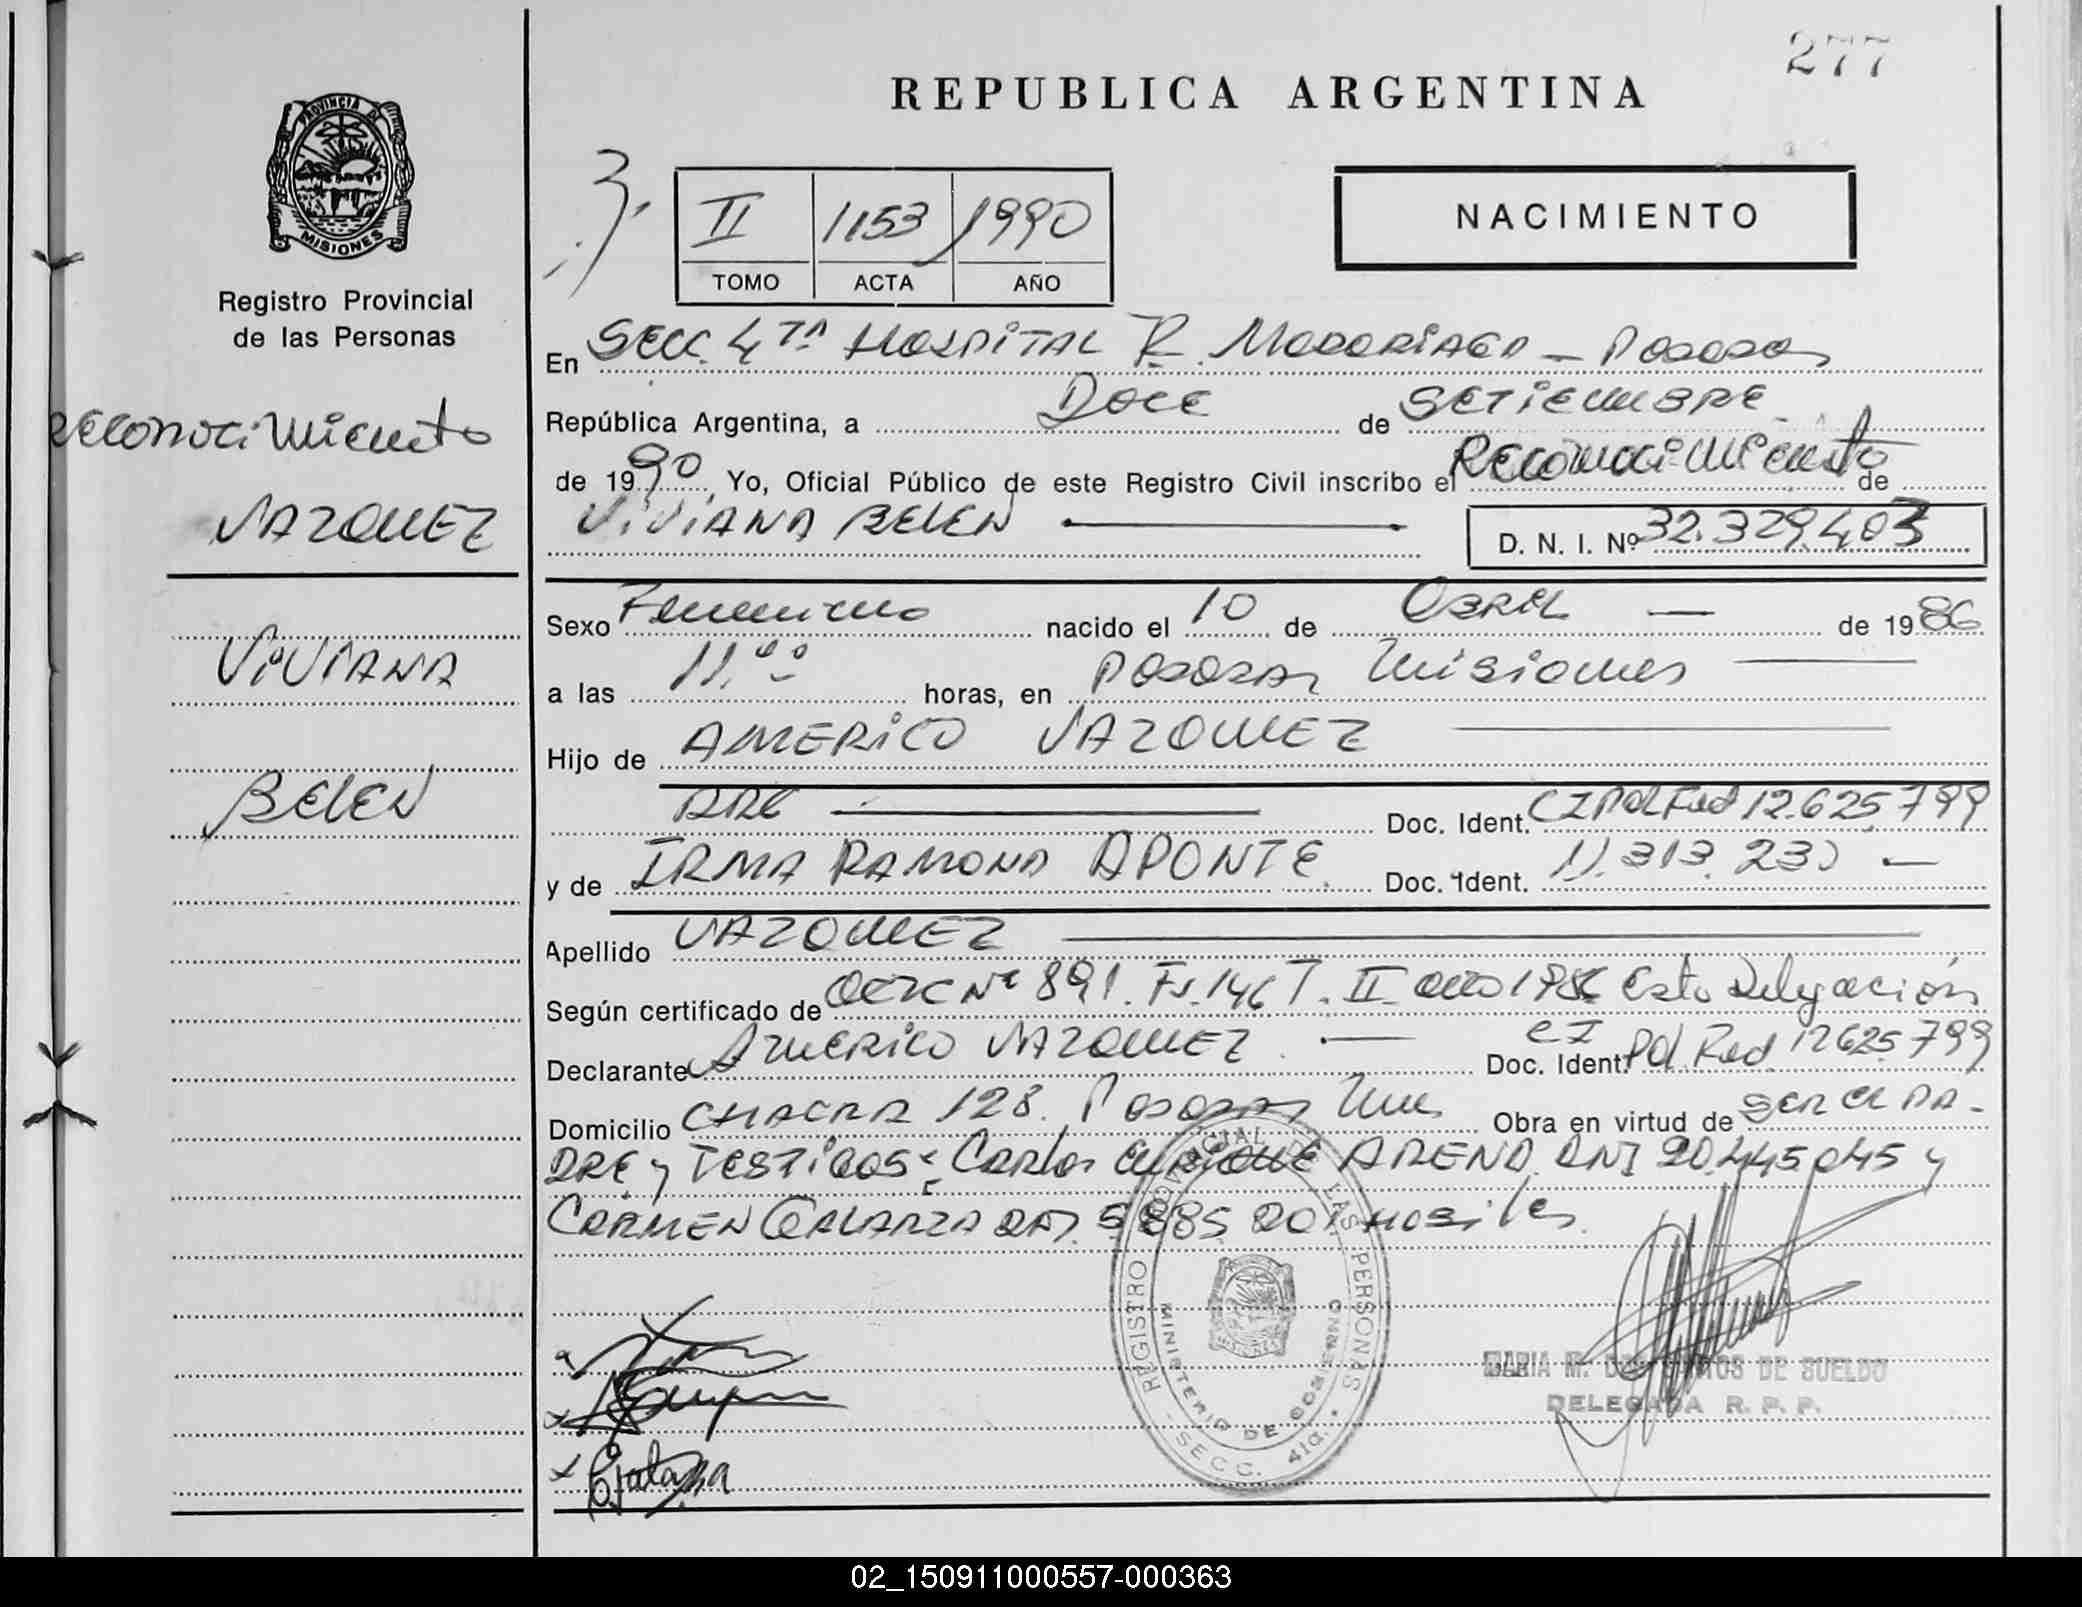 277
REPUBLICA ARGENTINA
PROVINCIA DE
MISIONES
Registro Provincial
de las Personas
II 1153 1990
TOMO ACTA AÑO
NACIMIENTO
En SECC. 4TA HOSPITAL R. MADARIAGA - POSADAS
República Argentina, a DOCE de SETIEMBRE
de 1990, Yo, Oficial Público de este Registro Civil inscribo el Reconocimiento de
VIVIANA BELEN
D. N. I. Nº 32.329.403
Reconocimiento
VAZQUEZ
VIVIANA
BELEN
Sexo Femenino nacido el 10 de ABRIL de 1986
a las 11.00 horas, en POSADAS Misiones
Hijo de AMERICO VAZQUEZ
Doc. Ident. CI Pol Fed 12.625.799
y de IRMA RAMONA APONTE Doc. Ident. 11.313.231
Apellido VAZQUEZ
Según certificado de ACTA Nº 891. Fs. 146 T. II año 1986 Esta Delegación
Declarante AMERICO VAZQUEZ Doc. Ident. CI Pol. Fed. 12625799
Domicilio CHACRA 128. Posadas Mnes Obra en virtud de SER EL PA-
DRE y TESTIGOS: Carlos ENRIQUE ARENA DNI 20445045 y
CARMEN GALARZA DNI 5.885.201 HABILES
REGISTRO PROVINCIAL DE LAS PERSONAS
MINISTERIO DE GOBIERNO
SECC. 4ta.
MISIONES
MARIA M. DOS SANTOS DE SUELDO
DELEGADA R. P. P.
02_150911000557-000363